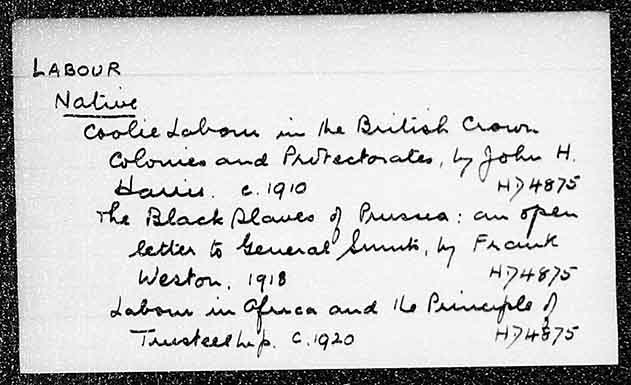 LABOUR
Native
Coolie Labour in the British Crown
Colonies and Protectorates, by John H.
Harris. c.1910 HD4875
The Black Slaves of Prussia: an open
letter to General Smuts, by Frank
Weston. 1918 HD4875
Labour in Africa and the Principle of
Trusteeship. c.1920 HD4875